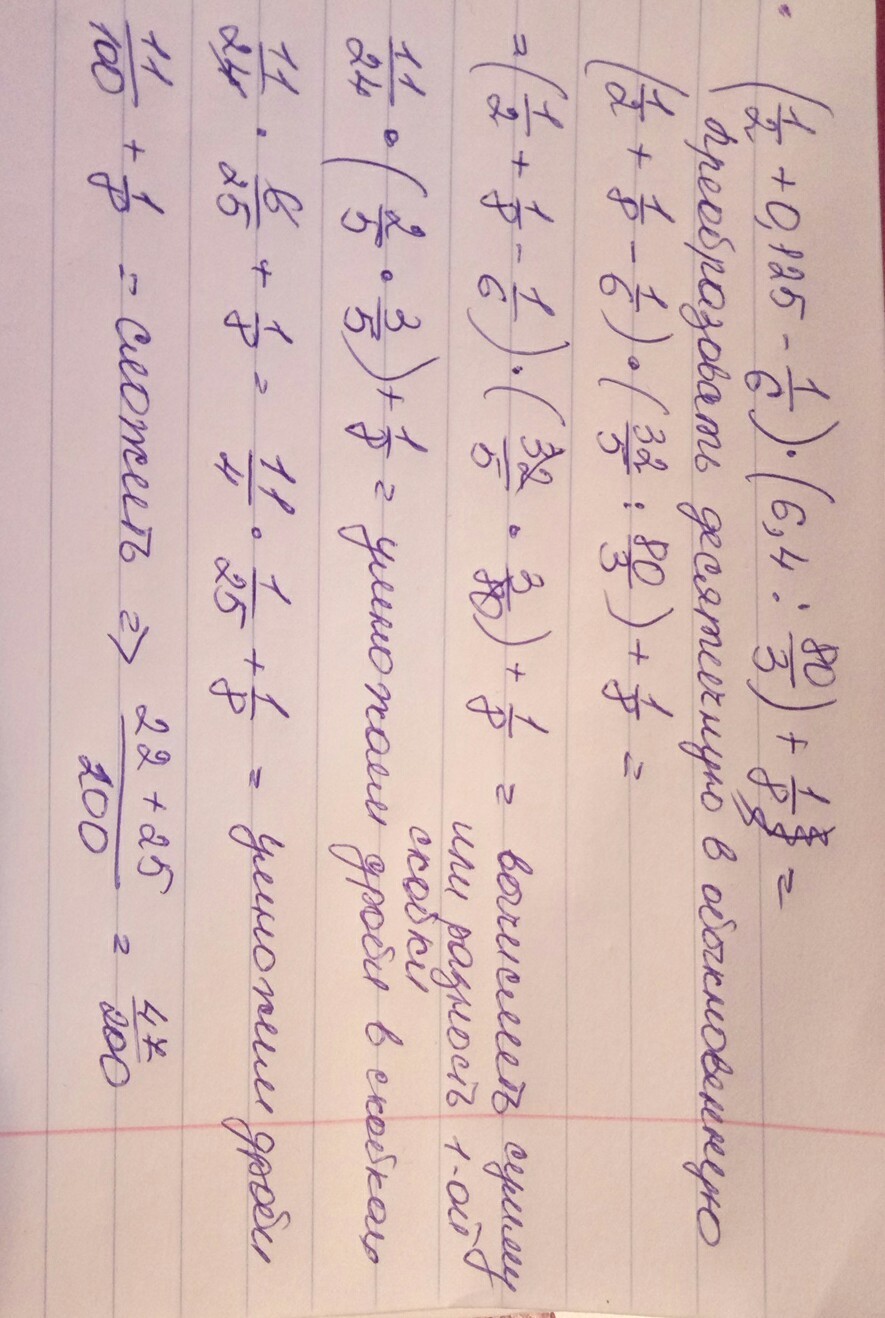 (1/2 + 0,125 - 1/6) · (6,4 : 80/3) + 1/8 =
преобразовать десятичную в обыкновенную
(1/2 + 1/8 - 1/6) · (32/5 : 80/3) + 1/8 =
= (1/2 + 1/8 - 1/6) · (32/5 · 3/80) + 1/8 = вычислить сумму
или разность 1-ой
скобки
11/24 · (2/5 · 3/5) + 1/8 = умножаем дроби в скобках
11/24 · 6/25 + 1/8 = 11/4 · 1/25 + 1/8 = умножим дроби
11/100 + 1/8 = сложить => 22 + 25/200 = 47/200